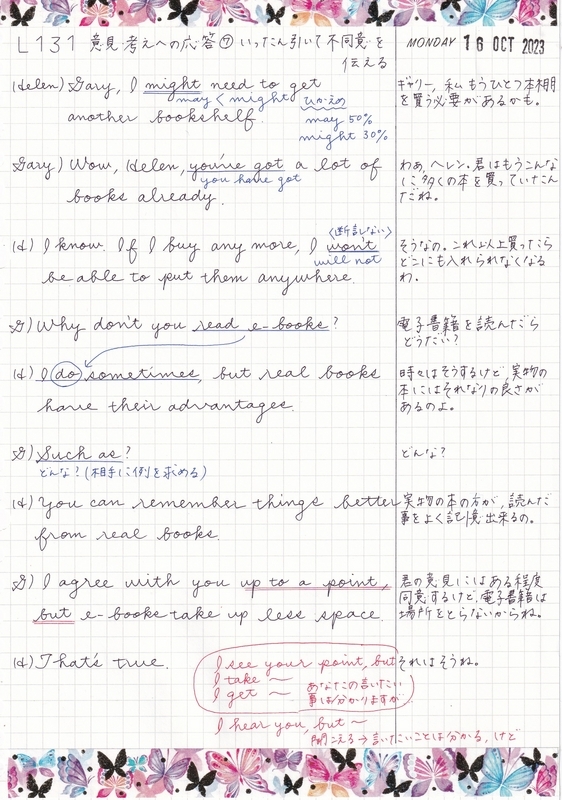 L131 意見・考えへの応答⑦ いったん引いて不同意を
伝える
MONDAY 16 OCT 2023
(Helen) Gary, I might need to get
may < might ひかえめ
another bookshelf.
may 50%
might 30%
ギャリー、私もうひとつ本棚
を買う必要があるかも。
Gary) Wow, Helen, you've got a lot of
you have got
books already.
わあ、ヘレン。君はもうこんな
に多くの本を買っていたん
だね。
〈断言しない〉
(H) I know. If I buy any more, I won't
will not
be able to put them anywhere.
そうなの。これ以上買ったら
どこにも入れられなくなる
わ。
G) Why don't you read e-books?
電子書籍を読んだら
どうだい?
(H) I do sometimes, but real books
have their advantages.
時々はそうするけど、実物の
本にはそれなりの良さが
あるのよ。
G) Such as?
どんな?(相手に例を求める)
どんな?
(H) You can remember things better
from real books.
実物の本の方が、読んだ
事をよく記憶出来るの。
G) I agree with you up to a point,
but e-books take up less space.
君の意見にはある程度
同意するけど、電子書籍は
場所をとらないからね。
(H) That's true.
それはそうね。
I see your point, but
I take 〜
I get 〜
あなたの言いたい
事は分かりますが
I hear you, but 〜
聞こえる→言いたいことは分かる、けど